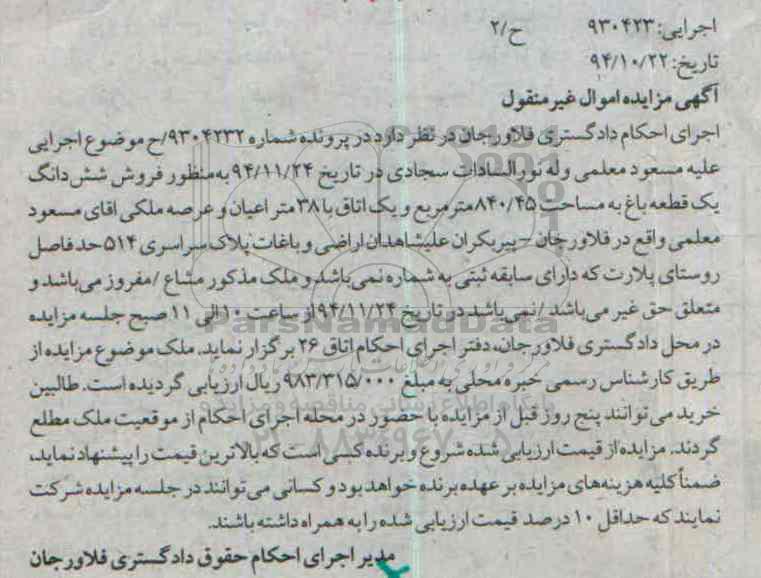 اجرایی: ۹۳۰۴۲۳ ح/۲
تاریخ: ۹۴/۱۰/۲۲
آگهی مزایده اموال غیر منقول
اجرای احکام دادگستری فلاورجان در نظر دارد در پرونده شماره ۹۳۰۴۲۳۲/ح موضوع اجرایی
علیه مسعود معلمی وله نورالسادات سجادی در تاریخ ۹۴/۱۱/۲۴ به منظور فروش شش دانگ
یک قطعه باغ به مساحت ۸۴۰/۴۵ مترمربع و یک اتاق با ۳۸ متر اعیان و عرصه ملکی اقای مسعود
معلمی واقع در فلاورجان - پیربکران علیشاهدان اراضی و باغات پلاک سراسری ۵۱۴ حد فاصل
روستای پلارت که دارای سابقه ثبتی به شماره نمی باشد و ملک مذکور مشاع /مفروز می باشد و
متعلق حق غیر می باشد /نمی باشد در تاریخ ۹۴/۱۱/۲۴ از ساعت ۱۰ الی ۱۱ صبح جلسه مزایده
ParsNamadData
در محل دادگستری فلاورجان، دفتر اجرای احکام اتاق ۲۶ برگزار نماید. ملک موضوع مزایده از
طریق کارشناس رسمی خبره محلی به مبلغ ۹۸۳/۳۱۵/۰۰۰ ریال ارزیابی گردیده است. طالبین
خرید می توانند پنج روز قبل از مزایده با حضور در محله اجرای احکام از موقعیت ملک مطلع
گردند. مزایده از قیمت ارزیابی شده شروع و برنده کسی است که بالاترین قیمت را پیشنهاد نماید،
ضمناً کلیه هزینه های مزایده بر عهده برنده خواهد بود و کسانی می توانند در جلسه مزایده شرکت
نمایند که حداقل ۱۰ درصد قیمت ارزیابی شده را به همراه داشته باشند.
مدیر اجرای احکام حقوق دادگستری فلاورجان